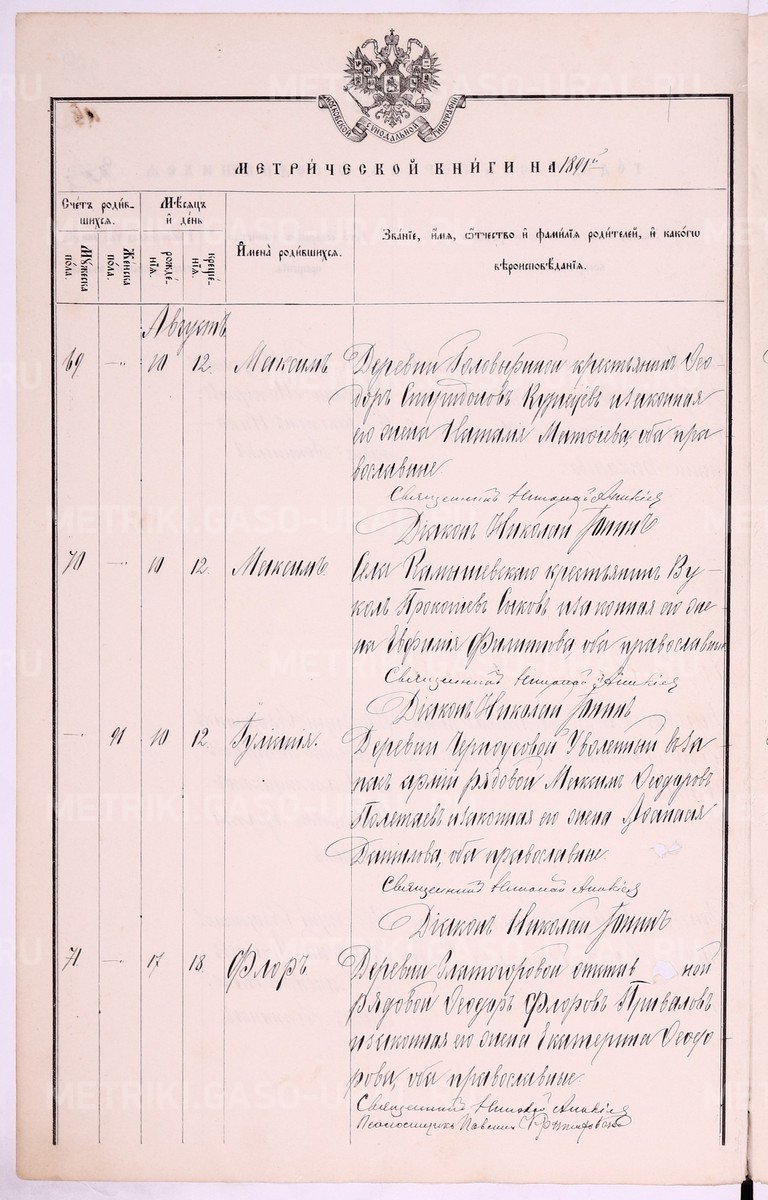 МОСКОВСКОЙ СѴНОДАЛЬНОЙ ТИПОГРАФІИ
МЕТРИ́ЧЕСКОЙ КНИ́ГИ НА 1891й
Счéтъ роди́в-
шихся.
Мѣсяцъ
и҆ дéнь
И҆менà роди́вшихся.
Звáнїе, и҆́мя, ѻ҆́тчество и҆ фами́лїя роди́телей, и҆ какóгѡ
вѣроисповѣ́данїя.
Мꙋ́жеска
пóла.
Жéнска
пóла.
рождé-
нїя.
крещé-
нїя.
Августъ
69 — 10 12. Максимъ Деревни Головыриной крестьянинъ Ѳео-
доръ Спиридоновъ Кузнецовъ и законная
его жена Наталія Матѳеева, оба пра-
вославные
Священникъ
Діаконъ Николай
70 — 10 12. Максимъ. Села Камышевскаго крестьянинъ Ву-
колъ Прокопьев Сысковъ и законная его же-
на Евфимія Филиппова, оба православные
Священникъ
Діаконъ Николай
— 91 10 12. Іуліанія. Деревни Черноусовой Уволенный въ за-
пасъ арміи рядовой Максимъ Ѳеодоровъ
Полетаевъ и законная его жена Аѳанасія
Данилова, оба православные.
Священникъ
Діаконъ Николай
71 — 17 18 Флоръ Деревни Златогоровой отстав ной
рядовой Ѳеодоръ Флоровъ Приваловъ
и законная его жена Екатерина Ѳеодо-
рова, оба православные.
Священникъ
Псаломщикъ
METRIKI.GASO-URAL.RU